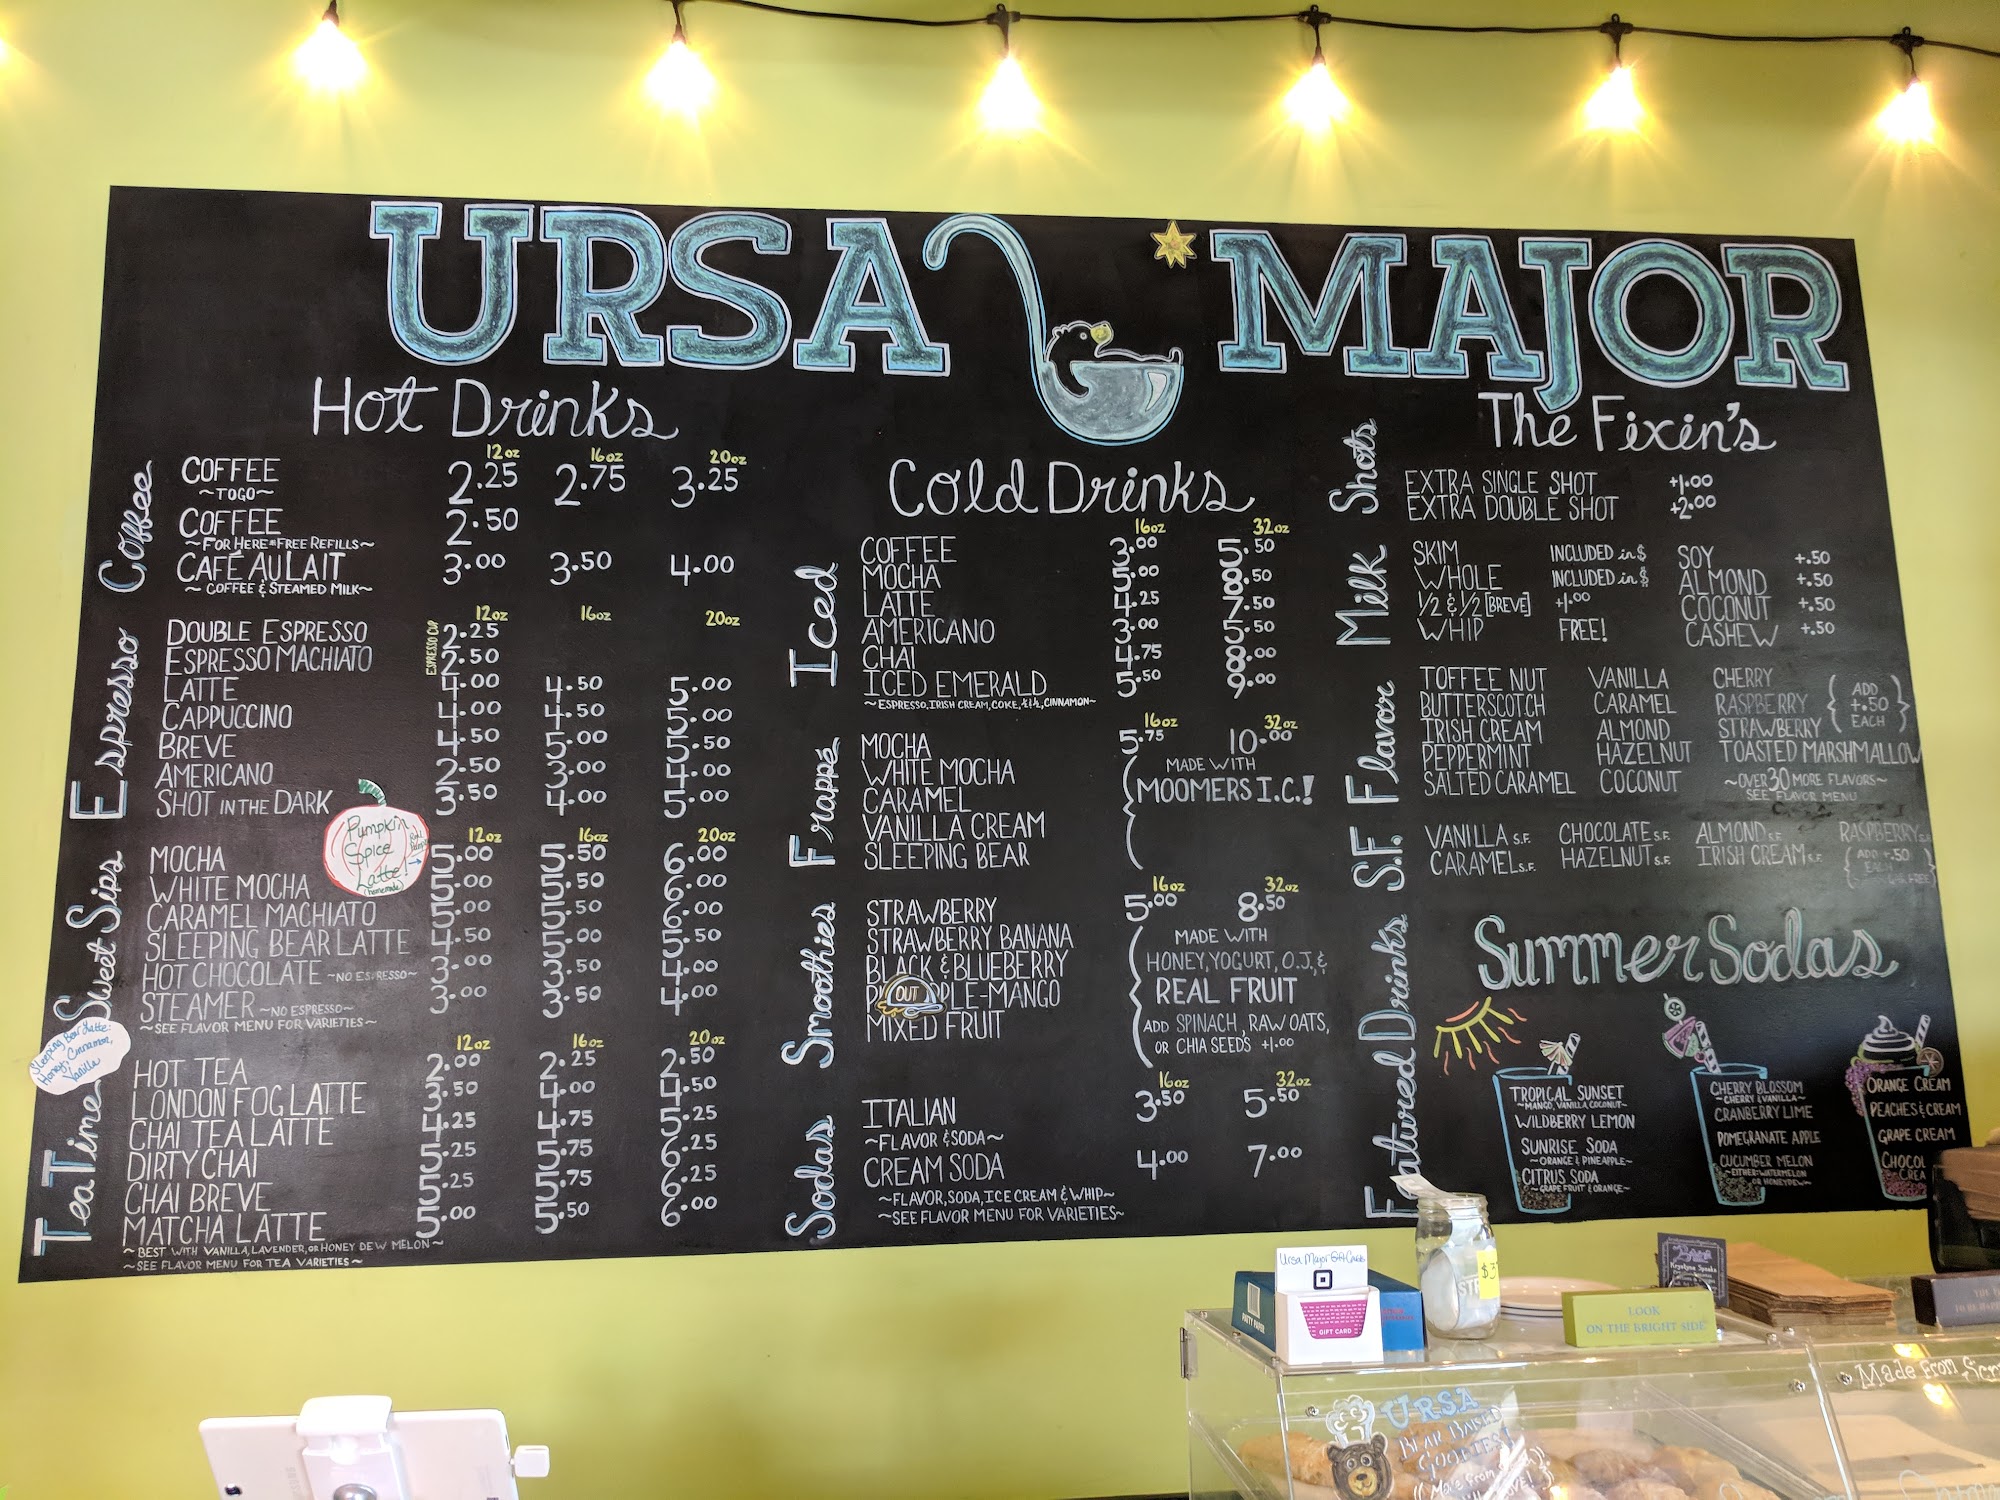 URSA MAJOR
Hot Drinks
Coffee
12oz 16oz 20oz
COFFEE 2.25 2.75 3.25
~TOGO~
COFFEE 2.50
~FOR HERE=FREE REFILLS~
CAFÉ AU LAIT 3.00 3.50 4.00
~COFFEE & STEAMED MILK~
Espresso
12oz 16oz 20oz
ESPRESSO CUP
DOUBLE ESPRESSO 2.25
ESPRESSO MACHIATO 2.50
LATTE 4.00 4.50 5.00
CAPPUCCINO 4.00 4.50 5.00
BREVE 4.50 5.00 5.50
AMERICANO 2.50 3.00 4.00
SHOT IN THE DARK 3.50 4.00 5.00
Pumpkin
Spice
Latte!
(homemade)
Sweet Sips
12oz 16oz 20oz
MOCHA 5.00 5.50 6.00
WHITE MOCHA 5.00 5.50 6.00
CARAMEL MACHIATO 5.00 5.50 6.00
SLEEPING BEAR LATTE 4.50 5.00 5.50
HOT CHOCOLATE ~NO ESPRESSO~ 3.00 3.50 4.00
STEAMER ~NO ESPRESSO~ 3.00 3.50 4.00
~SEE FLAVOR MENU FOR VARIETIES~
Sleeping Bear Latte:
Honey, Cinnamon,
Vanilla
Tea Time
12oz 16oz 20oz
HOT TEA 2.00 2.25 2.50
LONDON FOG LATTE 3.50 4.00 4.50
CHAI TEA LATTE 4.25 4.75 5.25
DIRTY CHAI 5.25 5.75 6.25
CHAI BREVE 5.25 5.75 6.25
MATCHA LATTE 5.00 5.50 6.00
~BEST WITH VANILLA, LAVENDER, OR HONEY DEW MELON~
~SEE FLAVOR MENU FOR TEA VARIETIES~
Cold Drinks
Iced
16oz 32oz
COFFEE 3.00 5.50
MOCHA 5.00 8.50
LATTE 4.25 7.50
AMERICANO 3.00 5.50
CHAI 4.75 8.00
ICED EMERALD 5.50 9.00
~ESPRESSO, IRISH CREAM, COKE, ½&½, CINNAMON~
Frappé
16oz 32oz
MOCHA 5.75 10.00
WHITE MOCHA
CARAMEL
VANILLA CREAM
SLEEPING BEAR
MADE WITH
MOOMERS I.C.!
Smoothies
16oz 32oz
STRAWBERRY 5.00 8.50
STRAWBERRY BANANA
BLACK & BLUEBERRY
OUT
PLE-MANGO
MIXED FRUIT
MADE WITH
HONEY, YOGURT, O.J., &
REAL FRUIT
ADD SPINACH, RAW OATS,
OR CHIA SEEDS +1.00
Sodas
16oz 32oz
ITALIAN 3.50 5.50
~FLAVOR & SODA~
CREAM SODA 4.00 7.00
~FLAVOR, SODA, ICE CREAM & WHIP~
~SEE FLAVOR MENU FOR VARIETIES~
The Fixin's
Shots
EXTRA SINGLE SHOT +1.00
EXTRA DOUBLE SHOT +2.00
Milk
SKIM INCLUDED in $ SOY +.50
WHOLE INCLUDED in $ ALMOND +.50
½ & ½ [BREVE] +1.00 COCONUT +.50
WHIP FREE! CASHEW +.50
Flavor
TOFFEE NUT VANILLA CHERRY
BUTTERSCOTCH CARAMEL RASPBERRY
IRISH CREAM ALMOND STRAWBERRY
PEPPERMINT HAZELNUT TOASTED MARSHMALLOW
SALTED CARAMEL COCONUT
ADD
+.50
EACH
~OVER 30 MORE FLAVORS~
SEE FLAVOR MENU
S.F.
VANILLA S.F. CHOCOLATE S.F. ALMOND S.F. RASPBERRY S.F.
CARAMEL S.F. HAZELNUT S.F. IRISH CREAM S.F.
ADD +.50
EACH
Featured Drinks
Summer Sodas
TROPICAL SUNSET
~MANGO, VANILLA, COCONUT~
WILDBERRY LEMON
SUNRISE SODA
~ORANGE & PINEAPPLE~
CITRUS SODA
~GRAPEFRUIT & ORANGE~
CHERRY BLOSSOM
~CHERRY & VANILLA~
CRANBERRY LIME
POMEGRANATE APPLE
CUCUMBER MELON
~EITHER: WATERMELON
OR HONEYDEW~
ORANGE CREAM
PEACHES & CREAM
GRAPE CREAM
CHOCOL
CREA
Ursa Major Gift Cards
GIFT CARD
PATTY PAPER
$3
LOOK
ON THE BRIGHT SIDE
Made from Scr
URSA
BEAR BAKED
GOODIES!
SAMSUNG